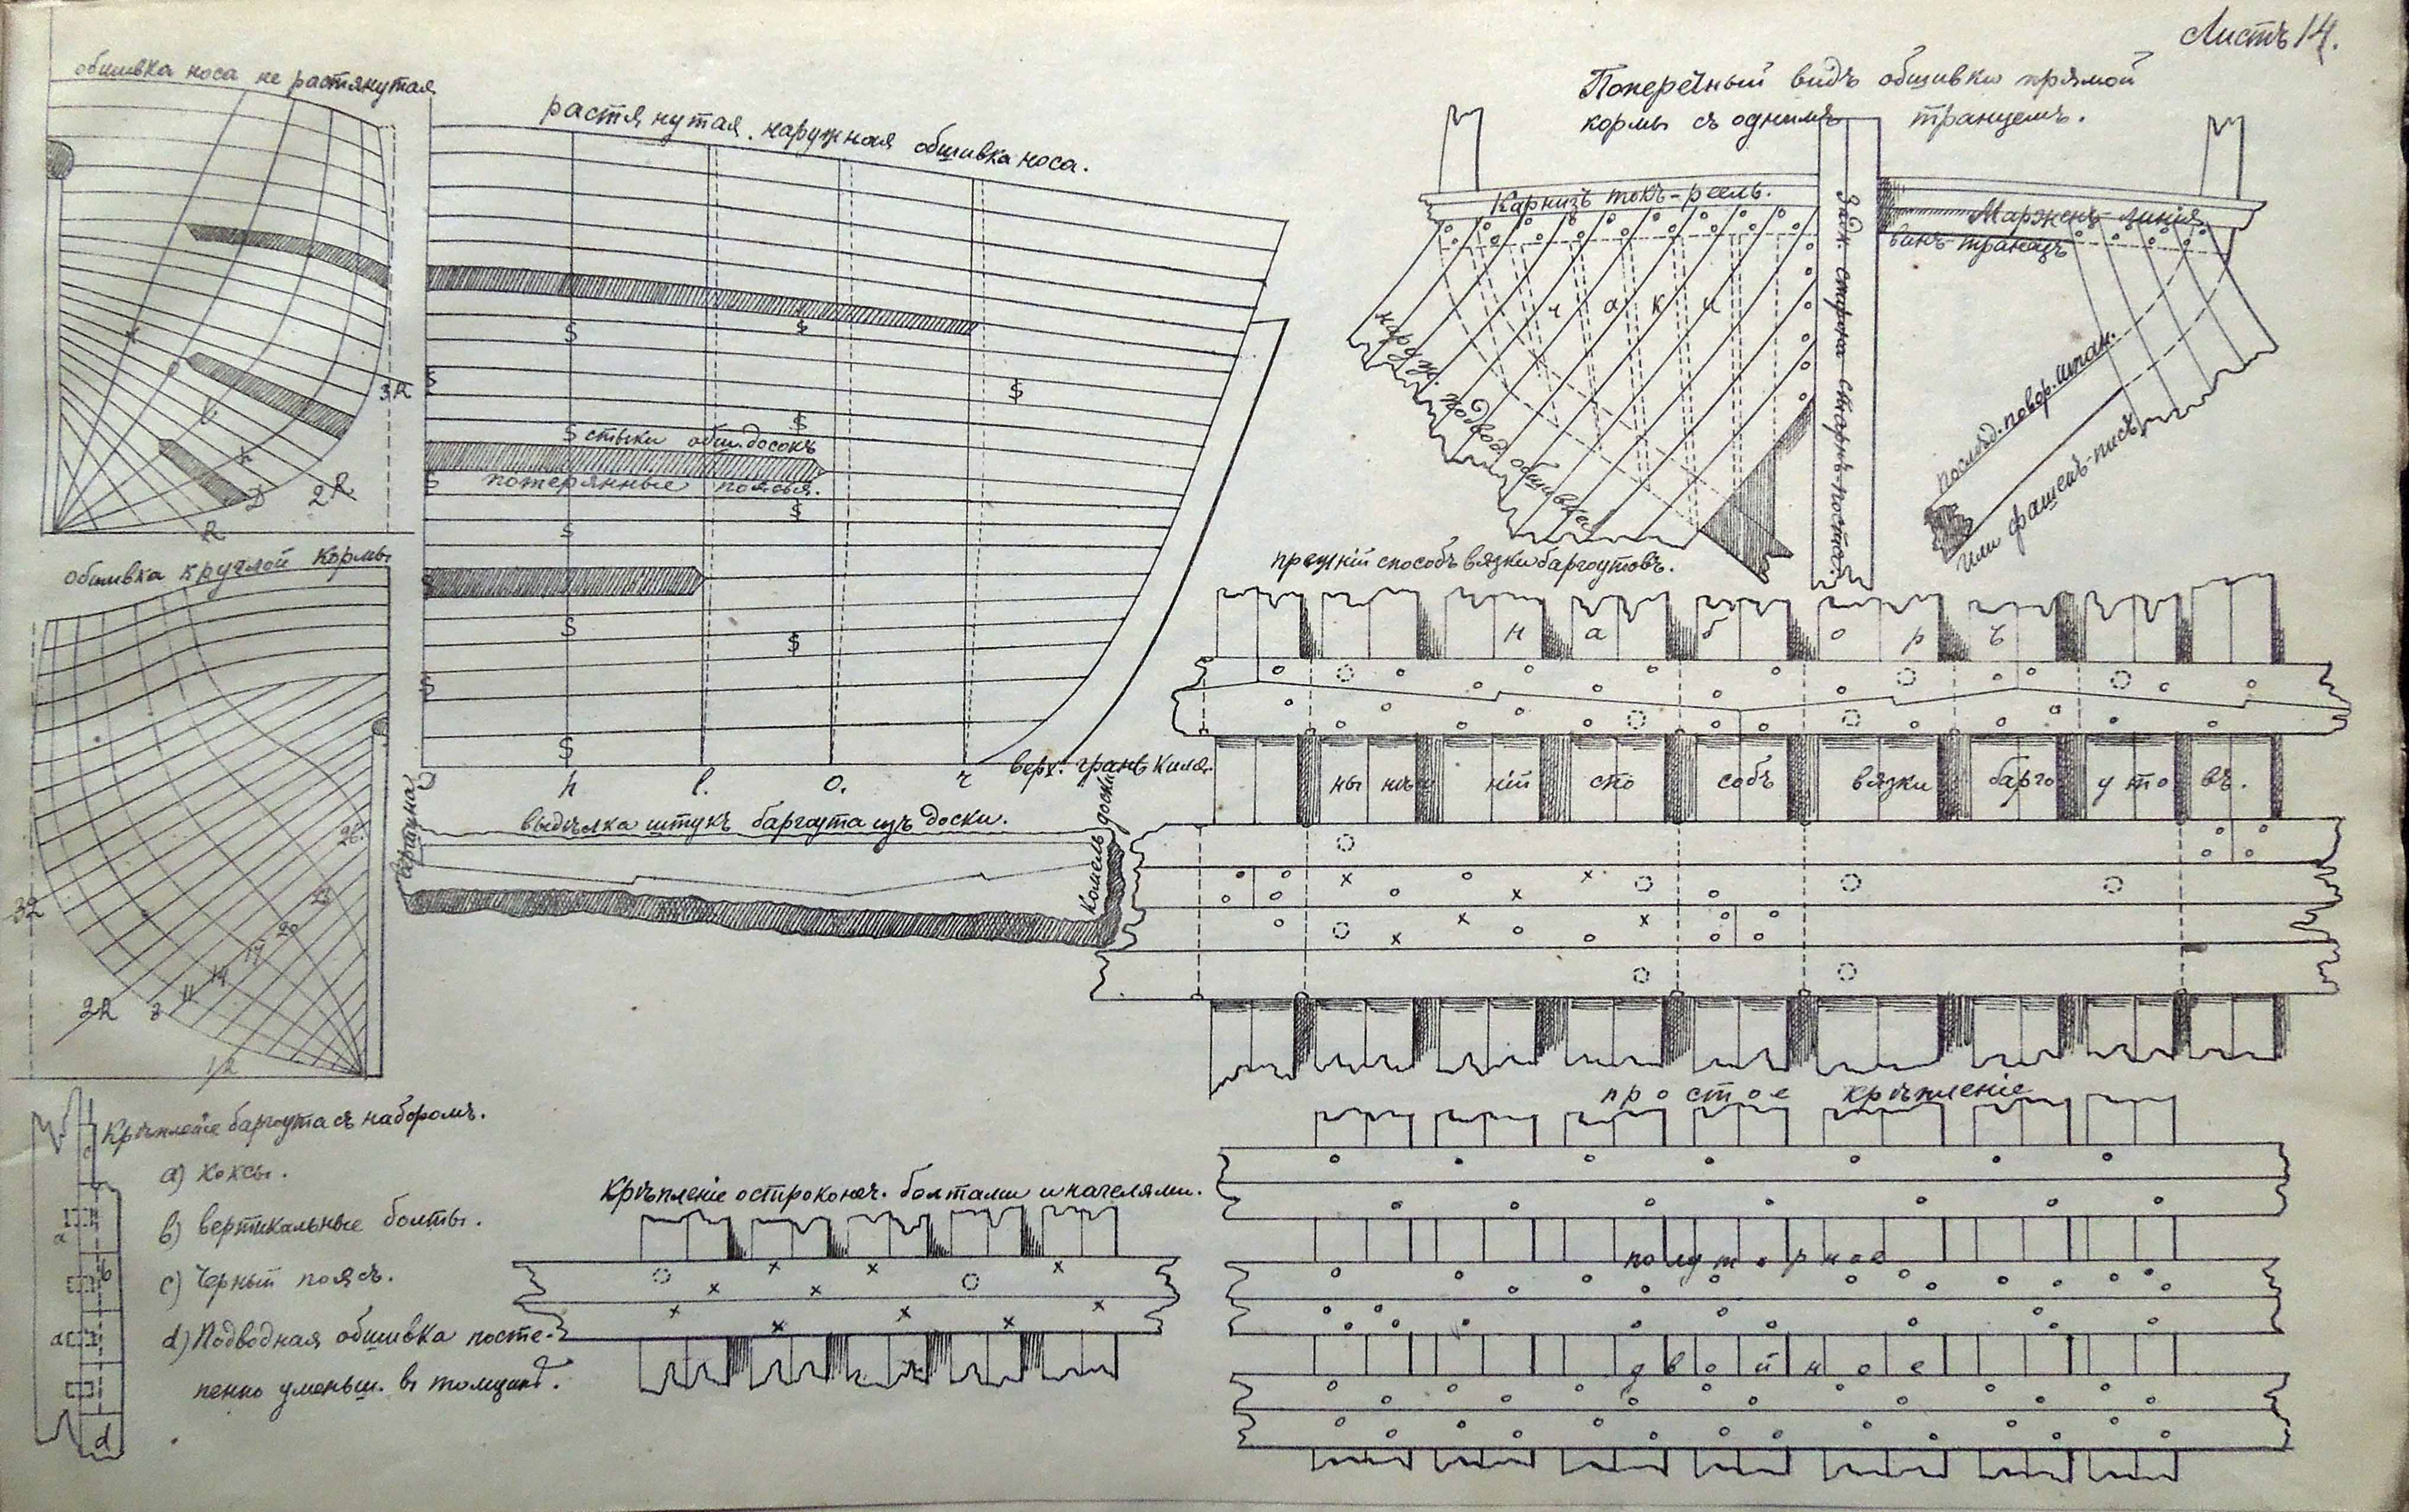 Листъ 14.
обшивка носа не растянутая
растянутая наружная обшивка носа.
Поперечный видъ обшивки прямой
кормы съ однимъ транцемъ.
Карнизъ токъ-реель.
Задн. сторона старнъ-поста.
Маржень-линія
винъ-транецъ
чаки
наруж. подвод. обшивка
послѣд. повор. шпан.
или фашенъ-писъ
3R
l
h
D
2R
R
S
S
S
S
S
S стыки обш. досокъ
S
потерянные поясья.
S
S
S
S
S
S
S
h
l.
o.
r
верх. грань киля.
обшивка круглой кормы
26.
23
20
17
14
11
8
3R
2R
1/2
выдѣлка штукъ баргоута изъ доски.
вершина
комель доски
прежній способъ вязки баргоутовъ.
наборъ
нынѣшній способъ вязки баргоутовъ.
Крѣпленіе баргоута съ наборомъ.
a) коксы.
b) вертикальные болты.
c) Черный поясъ.
d) Подводная обшивка посте-
пенно уменьш. въ толщинѣ.
c
a
b
a
d
Крѣпленіе остроконеч. болтами и нагелями.
простое крѣпленіе
полуторное
двойное